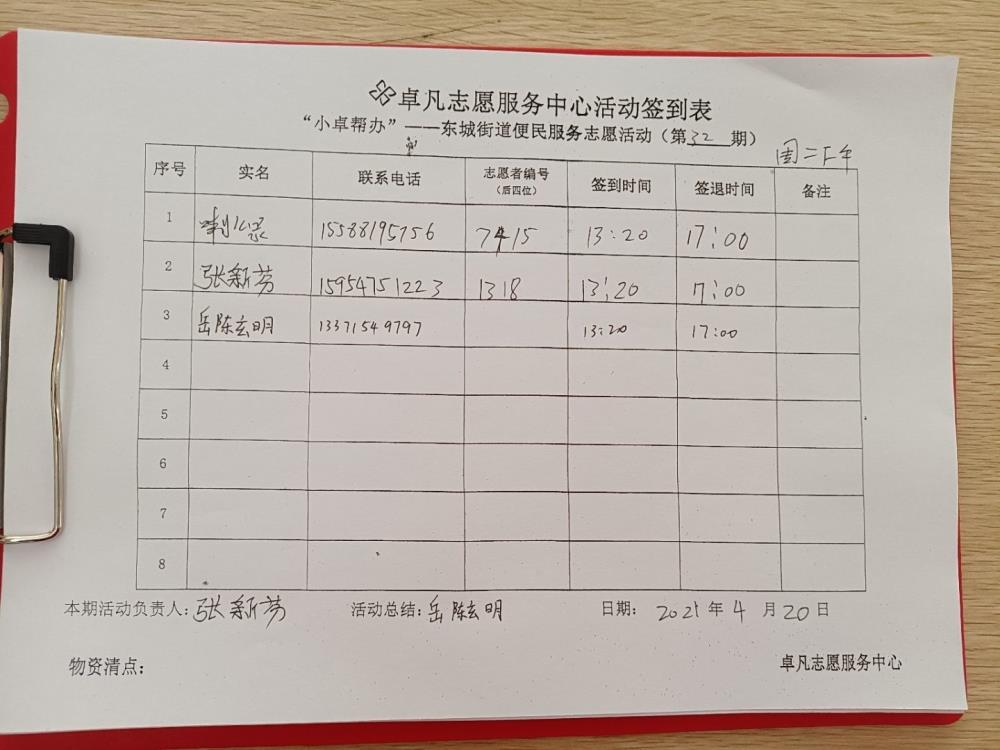 卓凡志愿服务中心活动签到表
“小卓帮办”——东城街道便民服务志愿活动（第32期）
周二下午
序号 实名 联系电话 志愿者编号（后四位） 签到时间 签退时间 备注
1 15588195756 7415 13:20 17:00
2 张新芳 15954751223 1318 13:20 17:00
3 岳陈玄明 13371549797 13:20 17:00
4
5
6
7
8
本期活动负责人：张新芳 活动总结：岳陈玄明 日期： 2021年4月20日
物资清点： 卓凡志愿服务中心